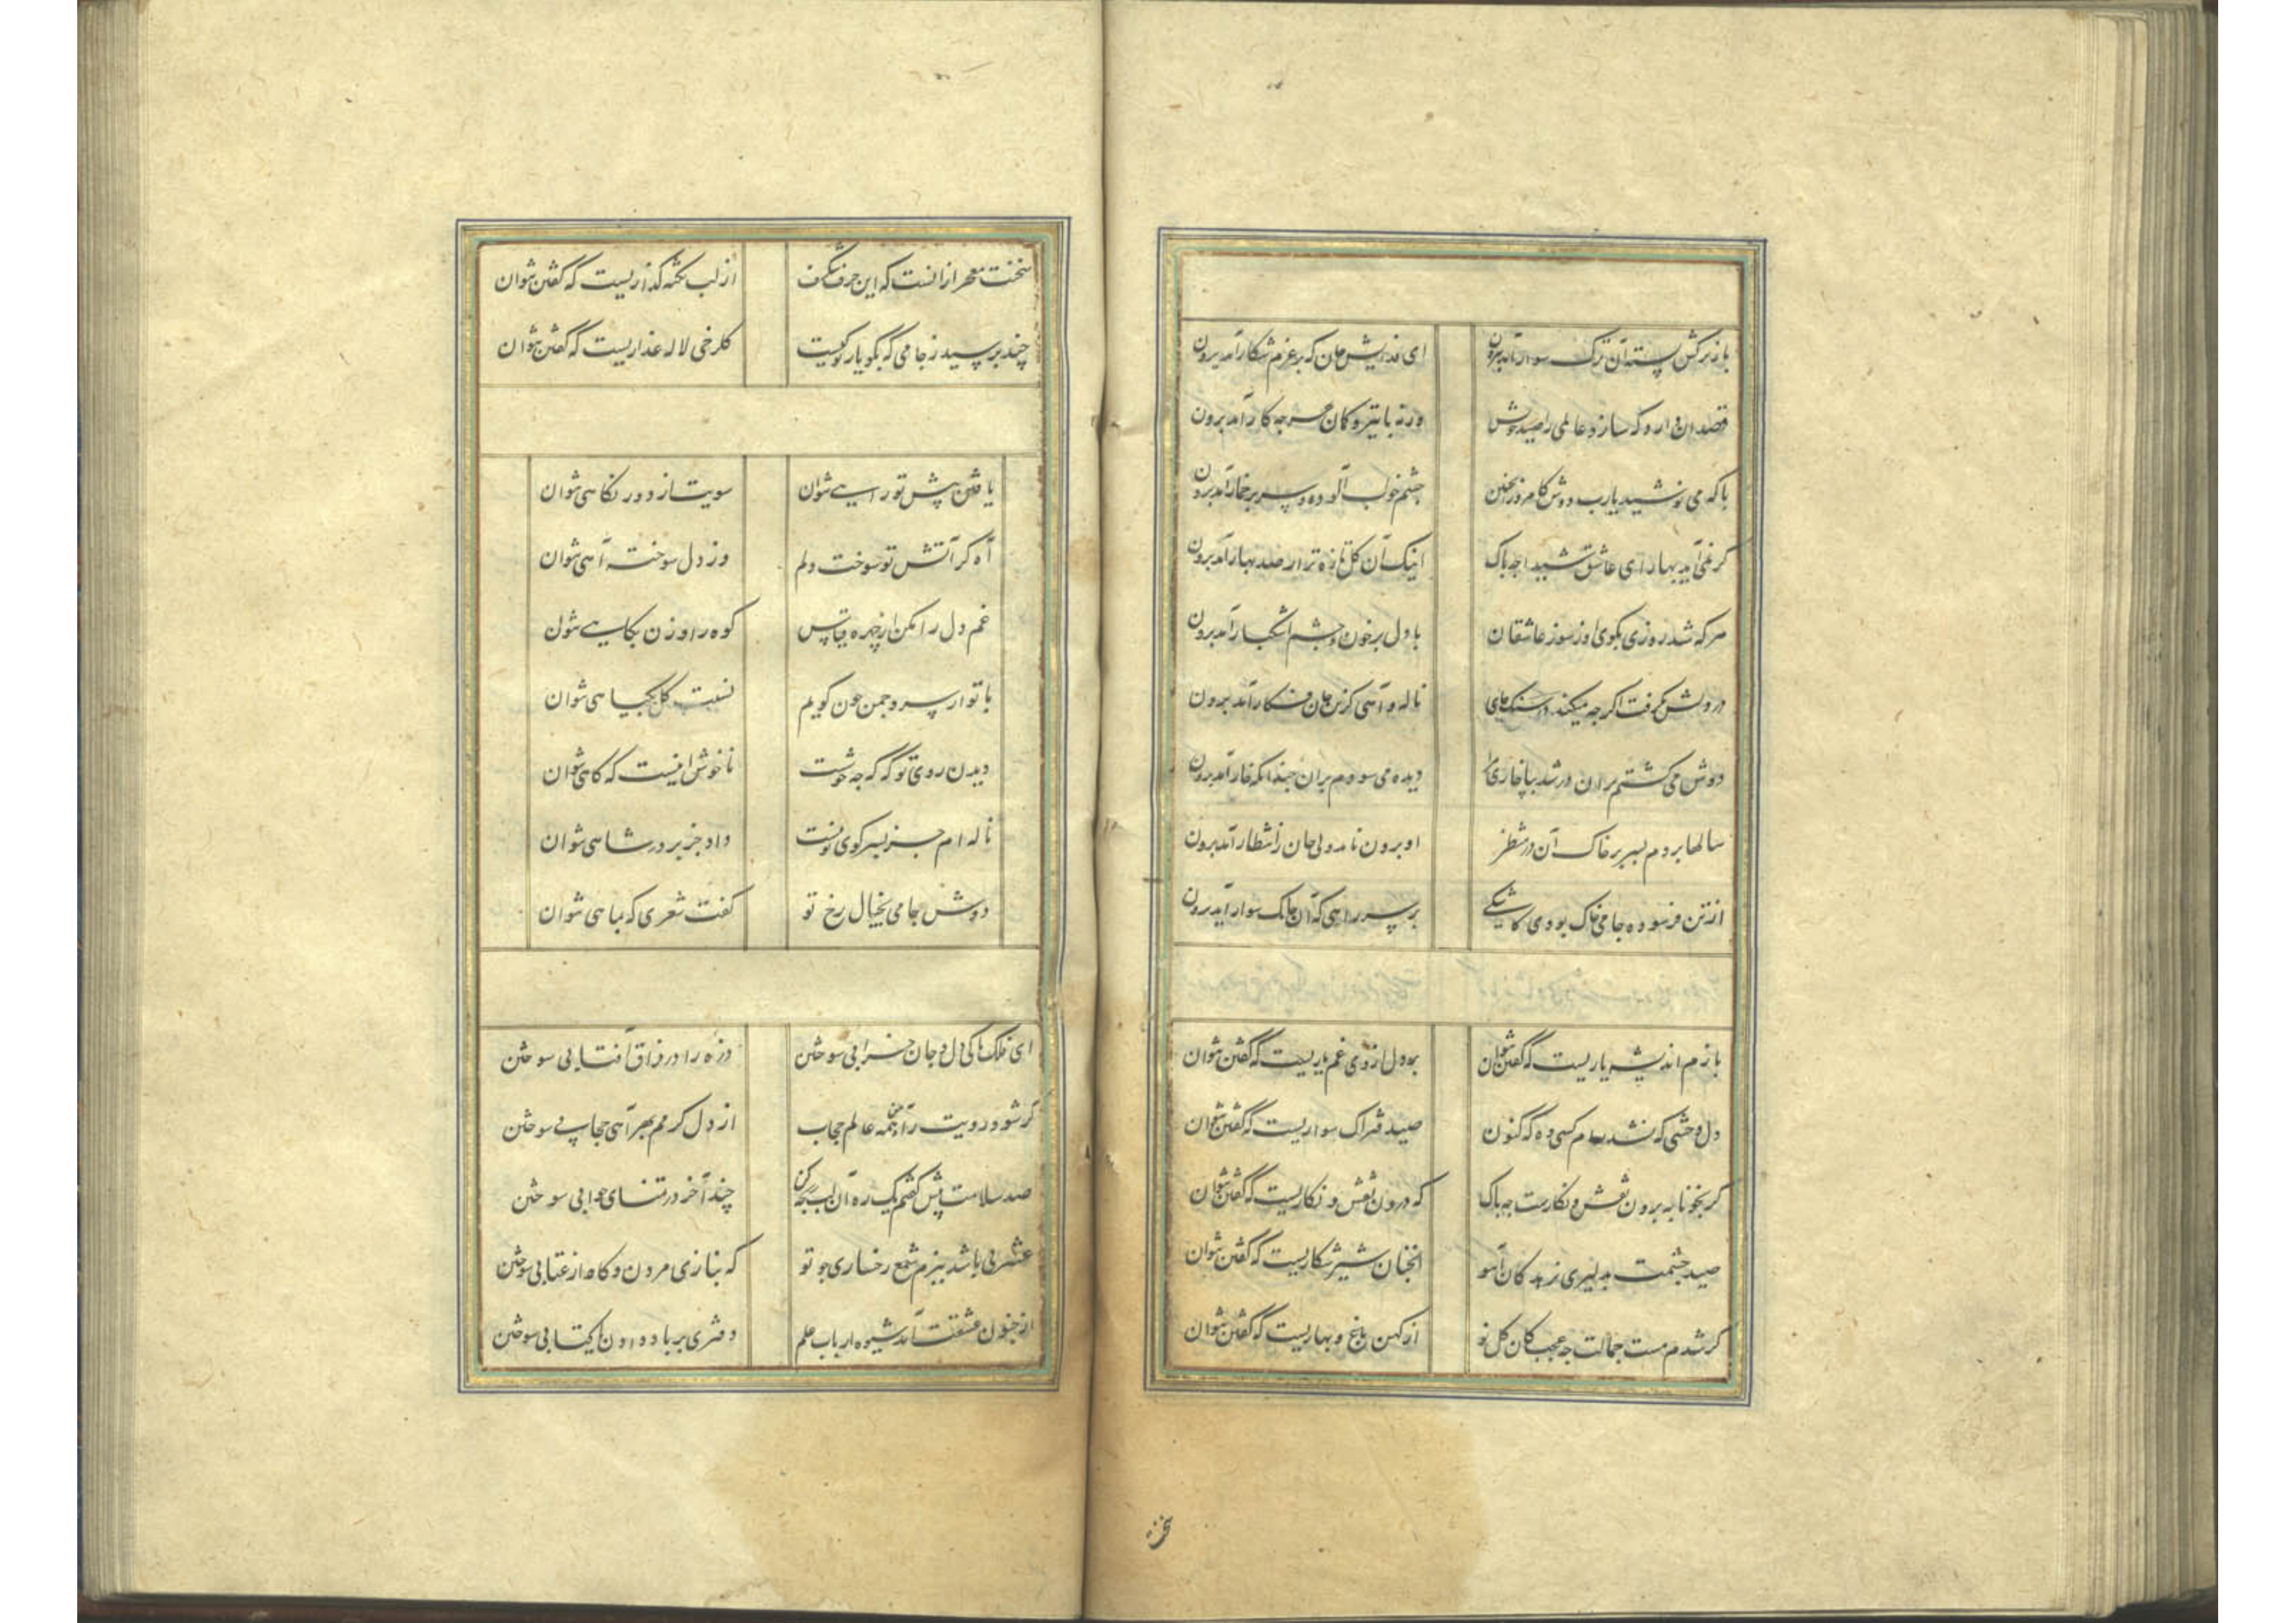 باز ترکش بسته آن ترک سوار آمد برون ای فدایش جان که بر عزم شکار آمد برون
قصد آن دارد که سازد عالمی را صید خویش ورنه با تیر و کمان بهر چه کار آمد برون
با که می نوشید یارب دوش کامروز اینچنین چشم خواب آلوده و سر پر خمار آمد برون
گر نمی آید بهار ای عاشق شیدا چه باک اینک آن گل تازه تر از صد بهار آمد برون
هر که شد روزی بکوی او ز سوز عاشقان با دل پر خون و چشم اشکبار آمد برون
در دلش نگرفت اگر چه میکند در سنگ جای ناله و آهی کزین جان فکار آمد برون
دوش می گشتم بران در شد بپا خاری مرا دیده می سودم بران چندانکه خار آمد برون
سالها بردم بسر بر خاک آن در منتظر او برون نامد ولی جان ز انتظار آمد برون
از تن فرسوده جامی خاک بودی کاشکی بر سر راهی که آن چابک سوار آمد برون
بازم اندیشه یاریست که گفتن نتوان بر دل از وی غم باریست که گفتن نتوان
دل وحشی که نشد رام کسی وه که کنون صید فتراک سواریست که گفتن نتوان
گر بخونابه برون نقش و نگارست چه باک که درون نقش و نگاریست که گفتن نتوان
صید چشمت به دلیری نرهد کان آهو آنچنان شیر شکاریست که گفتن نتوان
گر شدم مست جمالت چه عجب کان گل نو از کهن باغ و بهاریست که گفتن نتوان
سخنت معجر از آنست که این حرف شگرف از لب نکته گذاریست که گفتن نتوان
چند پرسید ز جامی که بگو یار تو کیست گلرخی لاله عذاریست که گفتن نتوان
یافتن پیش تو راهی نتوان سویت از دور نگاهی نتوان
آه کز آتش تو سوخت دلم وز دل سوخته آهی نتوان
غم دل را مکن از چهره قیاس کوه را وزن بکاهی نتوان
با تو از سرو چمن چون گویم نسبت گل بگیاهی نتوان
دیدن روی تو گه گه چه خوشست ناخوش اینست که گاهی نتوان
ناله ام جز بسر کوی تو نیست داد جز بر در شاهی نتوان
دوش جامی بخیال رخ تو گفت شعری که بماهی نتوان
ای فلک تا کی دل و جان خرابی سوختن ذره را در فراق آفتابی سوختن
گر شود رویت را همه عالم حجاب از دل گرمم بهر آهی حجابی سوختن
صد سلامت بیش گفتم یک ره آن لب رنجه کن چند آخر در تمنای جوابی سوختن
عشرتی باشد ببزم شمع رخساری چو تو گه بنازی مردن و گاه از عتابی سوختن
از جنون عشقت آمد شیوه ارباب علم دفتری بر باد دادن یا کتابی سوختن
سخنت